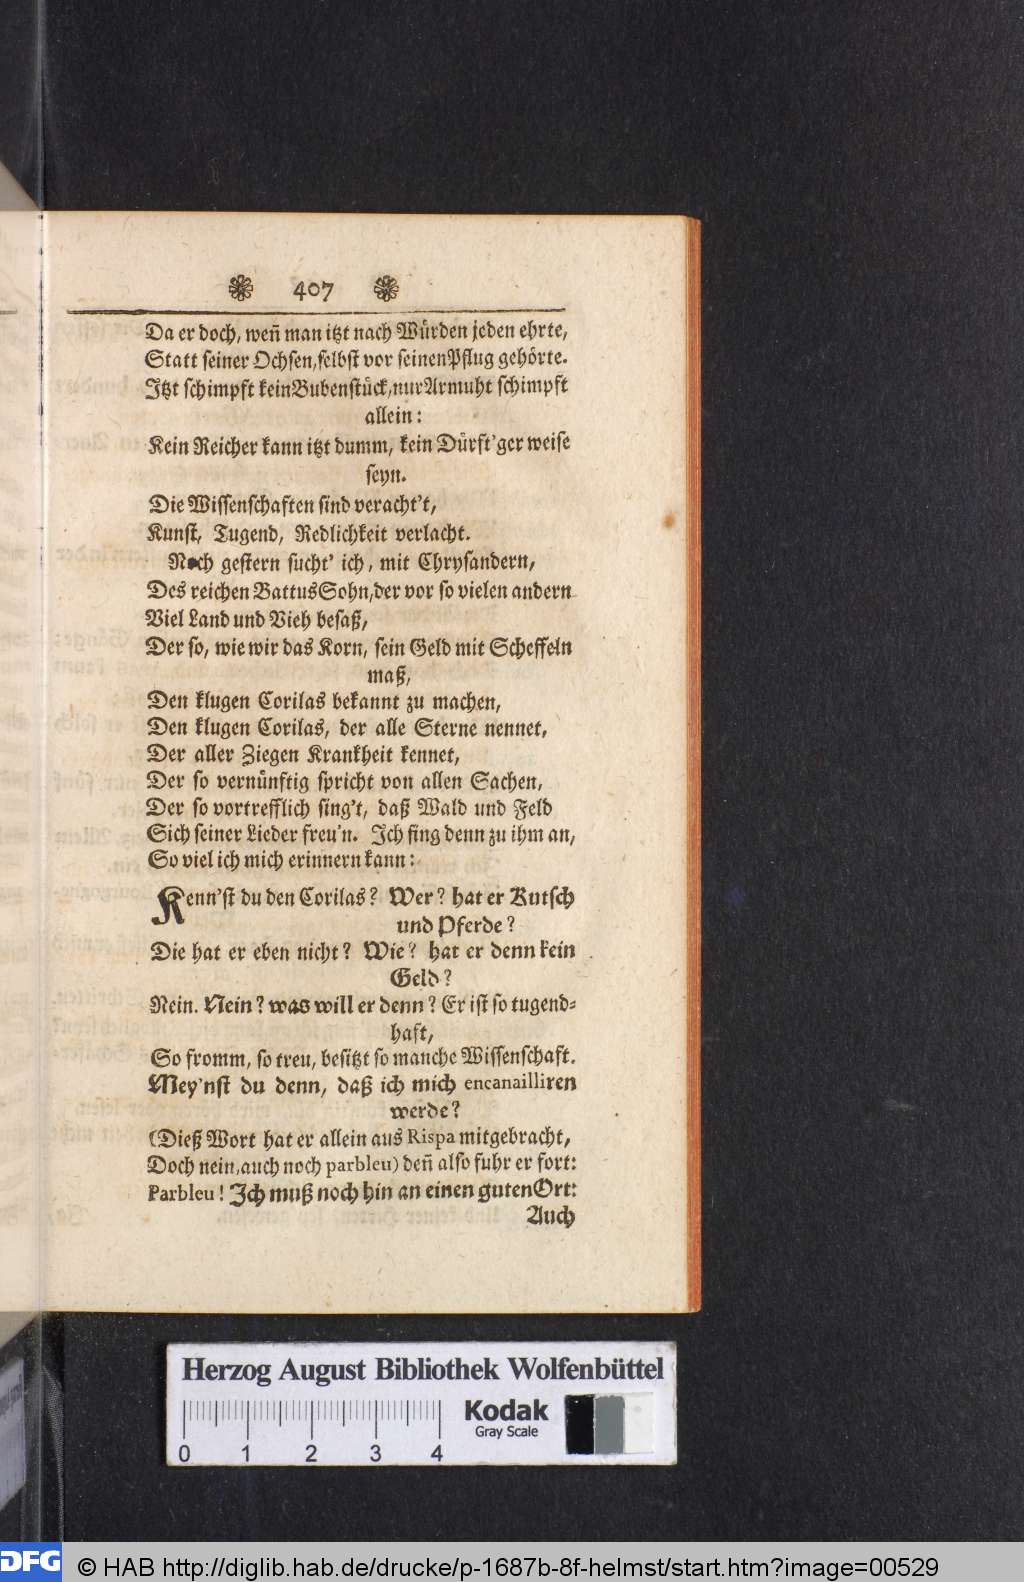 407
Da er doch, wen̄ man itzt nach Würden jeden ehrte,
Statt seiner Ochsen, selbst vor seinen Pflug gehörte.
Jtzt schimpft kein Bubenstück, nur Armuht schimpft
allein:
Kein Reicher kann itzt dumm, kein Dürft'ger weise
seyn.
Die Wissenschaften sind veracht't,
Kunst, Tugend, Redlichkeit verlacht.
Noch gestern sucht' ich, mit Chrysandern,
Des reichen Battus Sohn, der vor so vielen andern
Viel Land und Vieh besaß,
Der so, wie wir das Korn, sein Geld mit Scheffeln
maß,
Den klugen Corilas bekannt zu machen,
Den klugen Corilas, der alle Sterne nennet,
Der aller Ziegen Krankheit kennet,
Der so vernünftig spricht von allen Sachen,
Der so vortrefflich sing't, daß Wald und Feld
Sich seiner Lieder freu'n. Jch fing denn zu ihm an,
So viel ich mich erinnern kann:
Kenn'st du den Corilas? Wer? hat er Kutsch
und Pferde?
Die hat er eben nicht? Wie? hat er denn kein
Geld?
Nein. Nein? was will er denn? Er ist so tugend-
haft,
So fromm, so treu, besitzt so manche Wissenschaft.
Mey'nst du denn, daß ich mich encanailliren
werde?
(Dieß Wort hat er allein aus Rispa mitgebracht,
Doch nein, auch noch parbleu) den̄ also fuhr er fort:
Parbleu! Jch muß noch hin an einen guten Ort:
Auch
Herzog August Bibliothek Wolfenbüttel
Kodak
Gray Scale
0 1 2 3 4
DFG © HAB http://diglib.hab.de/drucke/p-1687b-8f-helmst/start.htm?image=00529